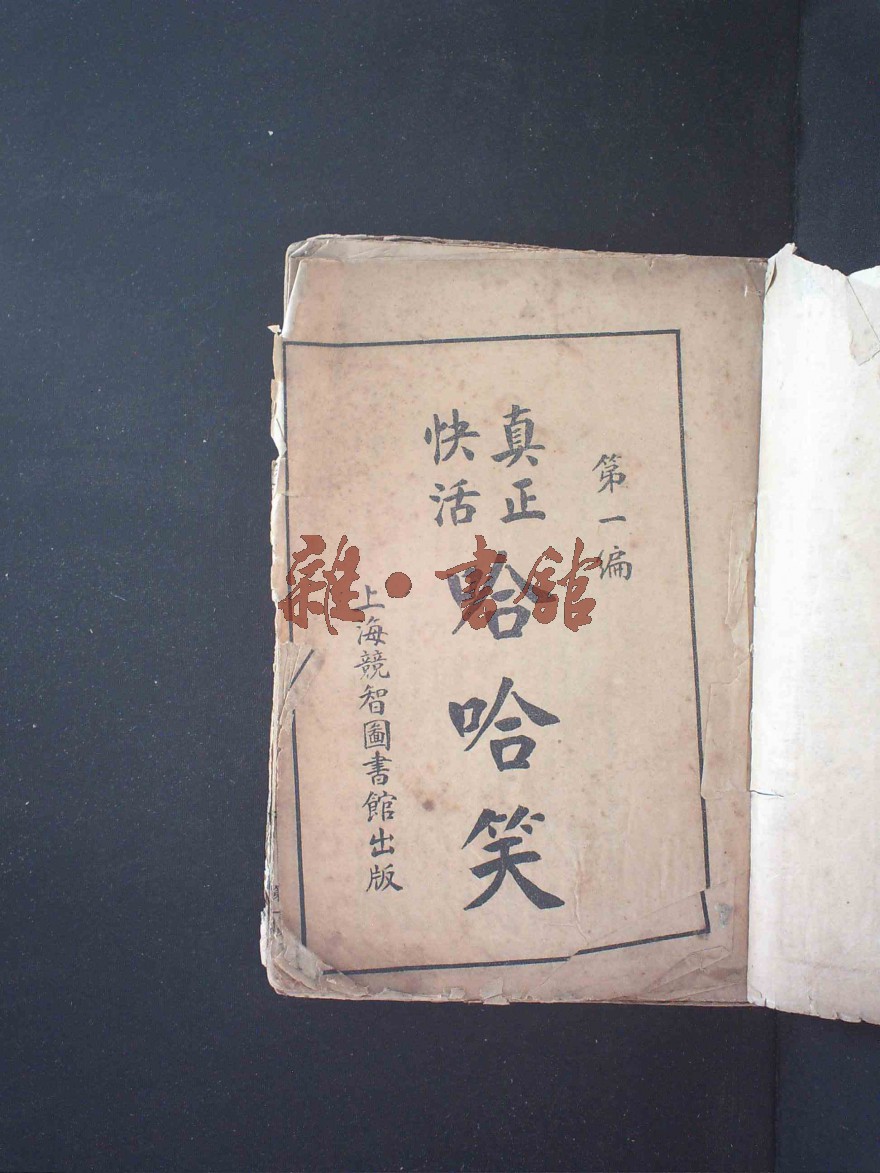 第一編
真正
快活
哈哈笑
上海競智圖書館出版
雜·書館